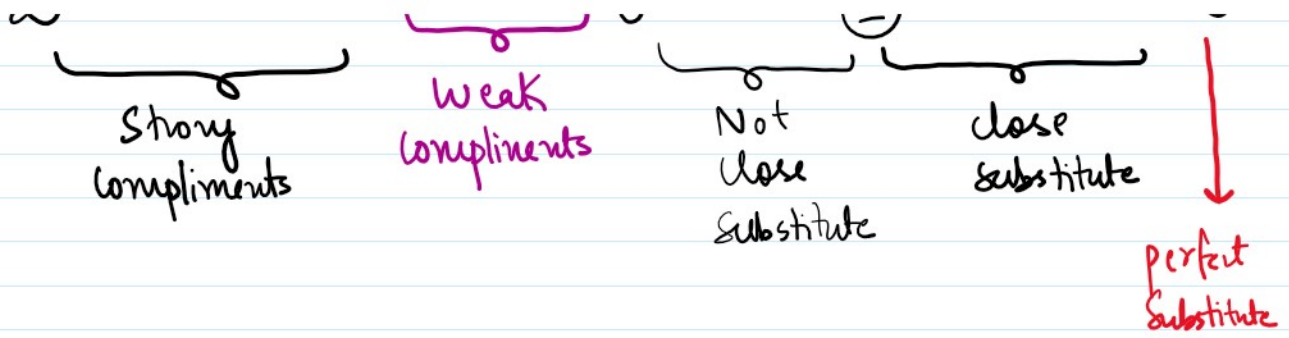 Strong
Compliments
Weak
Compliments
Not
Close
Substitute
close
substitute
perfect
Substitute